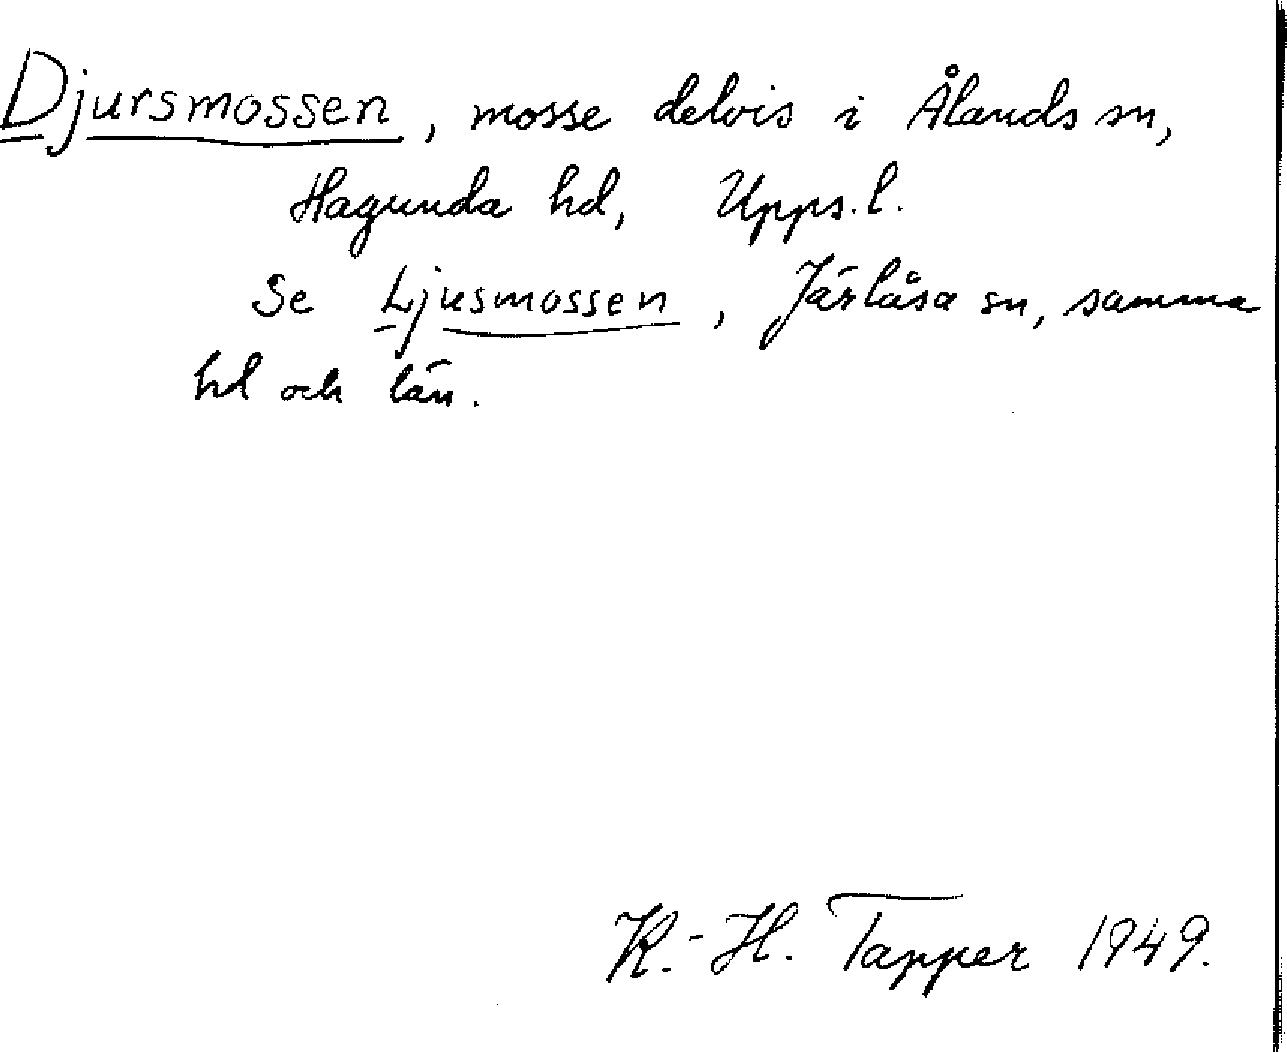 Djursmossen, mosse delvis i Ålands sn,
Hagunda hd, Upps. l.
Se Ljusmossen, Järlåsa sn, samma
hd och län.
K.-H. Tapper 1949.